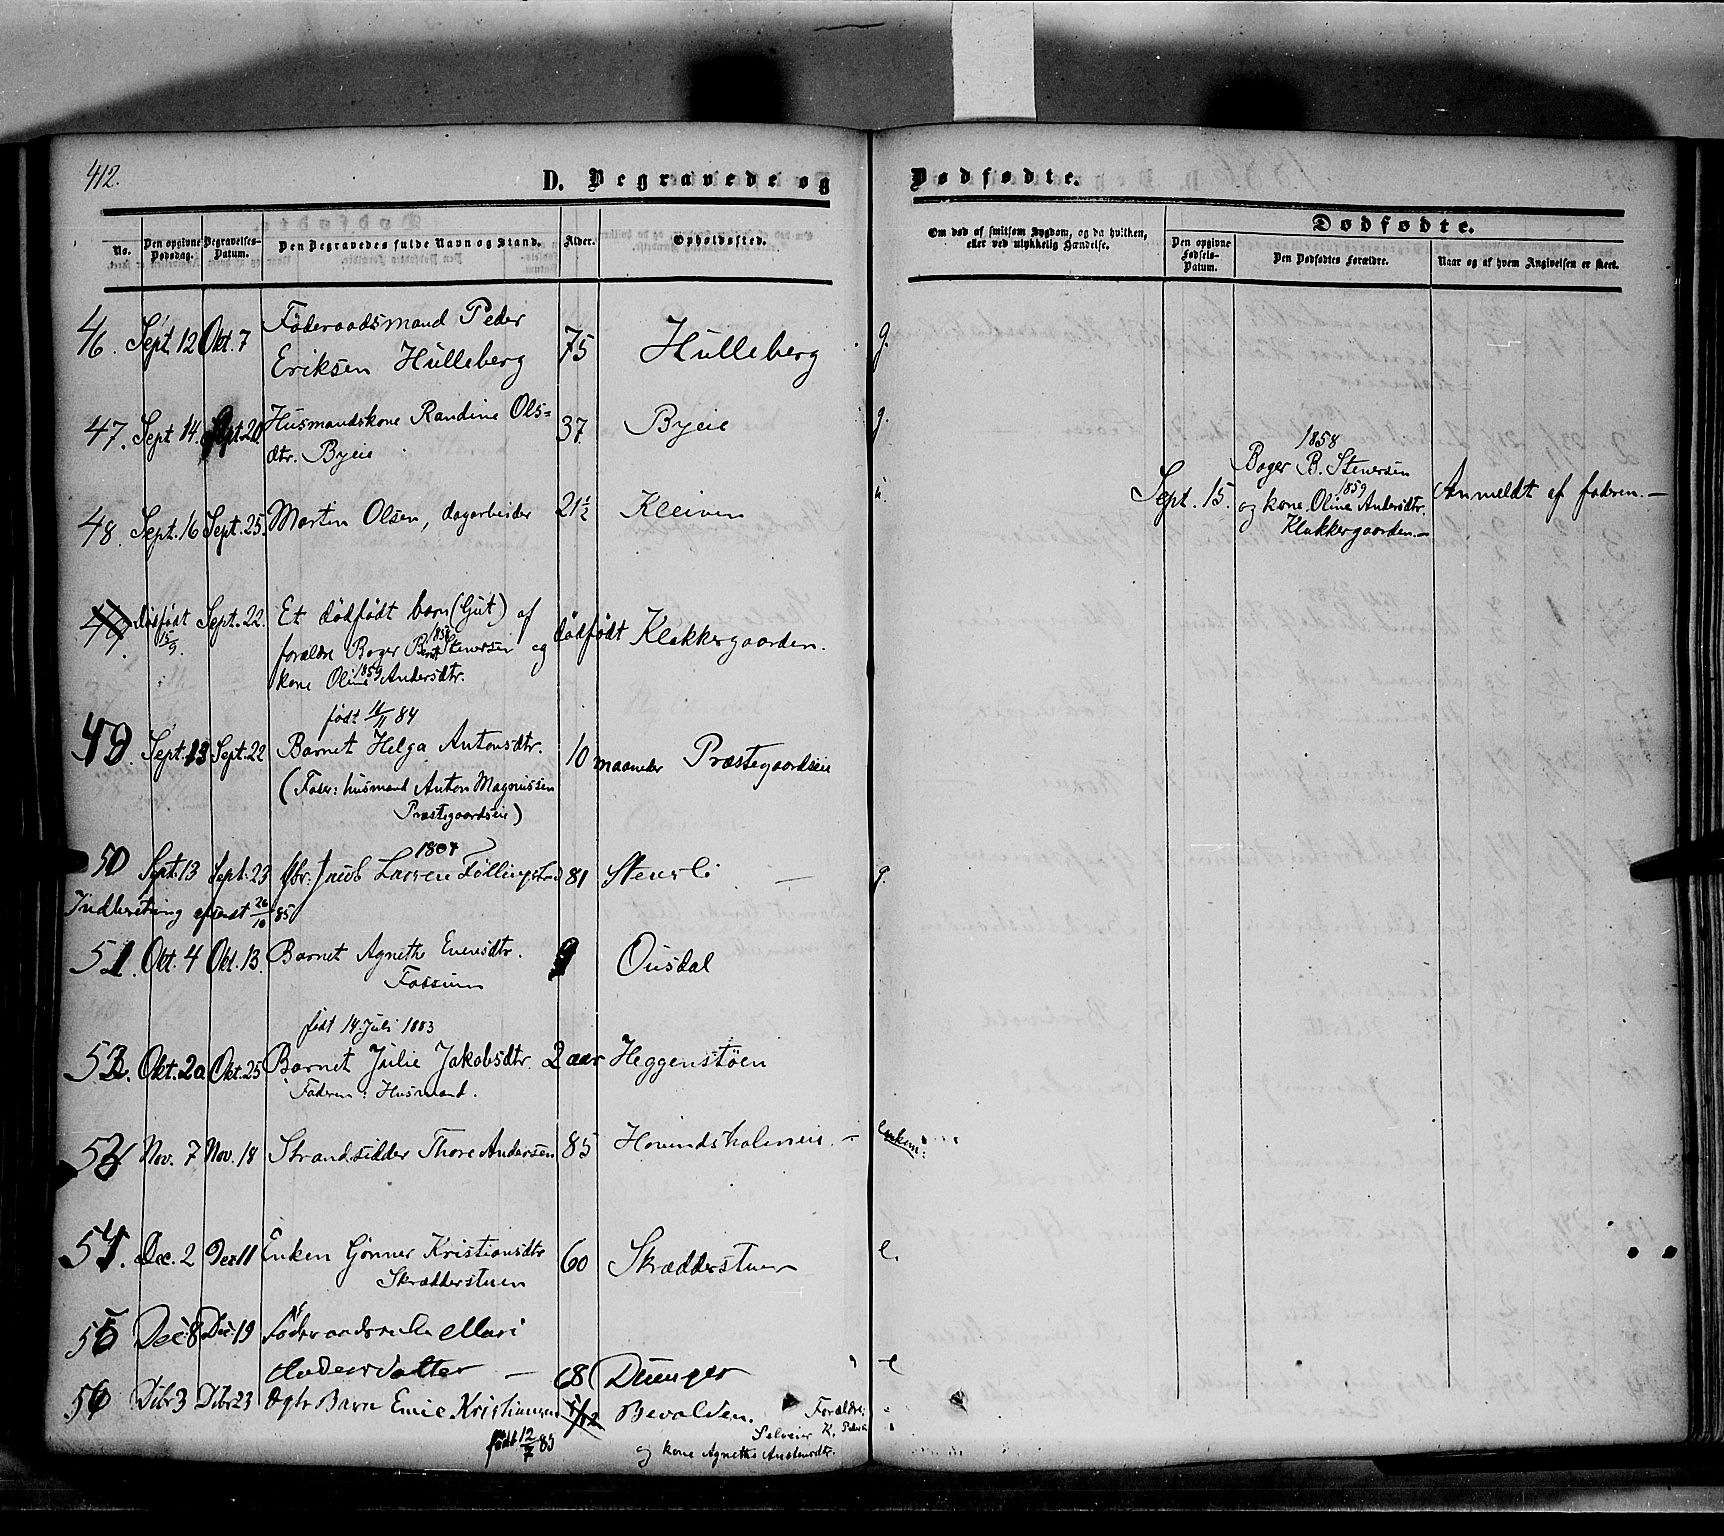 412.
D. Begravede og
Dødfødte.
No.
Den opgivne Dødsdag.
Begravelses-Datum.
Den Begravedes fulde Navn og Stand.
Alder.
Opholdssted.
Om død af smitsom Sygdom, og da hvilken,
eller ved ulykkelig Hændelse.
Dødfødte.
Den opgivne Fødsels-Datum.
Den Dødfødtes Forældre.
Naar og af hvem Angivelsen er skeet.
46. Sept. 12 Okt. 7 Føderaadsmand Peder
Eriksen Hulleberg 75 Hulleberg g.
47. Sept 14. Sept. 20 Husmandskone Randine Ols=
dtr. Byeie 37 Byeie g.
48. Sept. 16 Sept. 25. Martin Olsen, dagarbeider 21½ Kleiven u.
1858
Sept. 15. Boger B. Stenersen
og kone Oline 1859 Andersdtr.
Klakkergaarden.—
Anmeldt af faderen.—
49. dødfødt 15/9. Sept. 22. Et dødfødt barn (Gut) af
forældre Boger Bernt 1858 Stenersen og
kone Oline 1859 Andersdtr.
dødfødt Klakkergaarden.
født 11/11 84
49. Sept. 13 Sept. 22 Barnet Helga Antonsdtr. 10 maaneder Præstegaardseie
(Fader: husmand Anton Magnussen
Præstegaardseie)
1804
50 Sept. 13 Sept. 23 Jacob Larsen Føllingstad 81 Stensli — g.
Indberetning afsendt 26/10 85
51. Okt. 4 Okt. 13. Barnet Agnethe Evensdtr. 9 Ousdal
Fossum
født 14. Juli 1883
52. Okt. 20 Okt. 25 Barnet Julie Jakobsdtr. 2 aar Heggenstøen
Faderen: Husmand.
53 Nov. 7 Nov. 18 Strandsidder Thore Andersen 85 Hovindsholmeie. — enkem.
54. Dec. 2 Dec 11 Enken Gønner Kristiansdtr 60 Skrædderstuen e.
Skrædderstuen
55 Dec. 8 Dec. 19 Føderaadsenke Mari
Andersdatter — 68 — e
56 Dcbr 3 Dcbr 23 Ægte Barn Emil Kristiansen 5/12 Bevolden. Forældre:
Selveier K. Peders
født 12/7 85
og kone Agnethe Austensdtr.